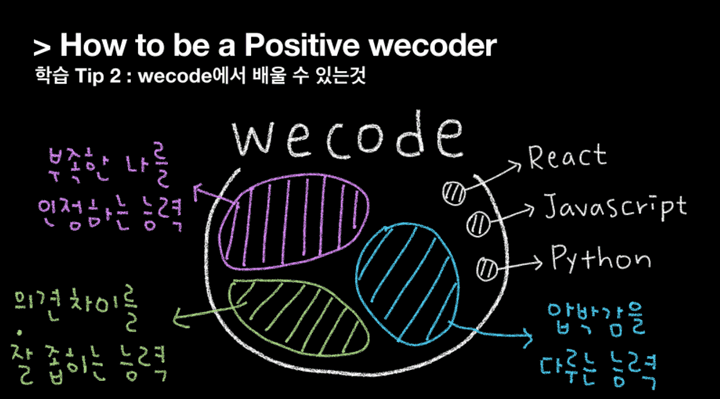 > How to be a Positive wecoder
학습 Tip 2 : wecode에서 배울 수 있는것
wecode
부족한 나를
인정하는 능력
React
Javascript
Python
의견 차이를
잘 좁히는 능력
압박감을
다루는 능력